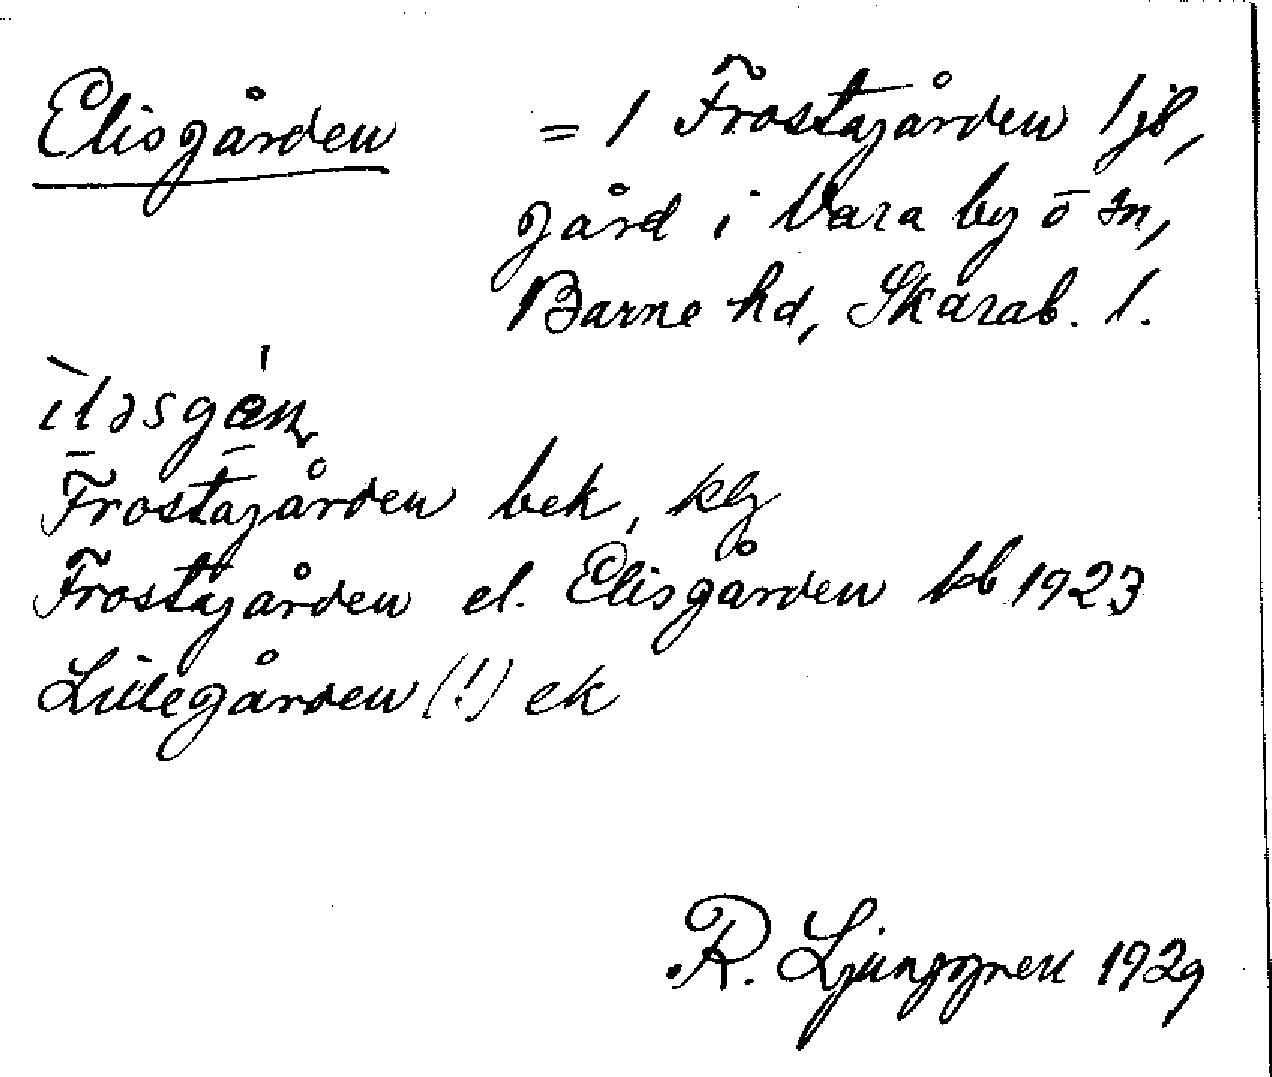 Elisgården = 1 Frostagården 1 jb,
gård i Vara by o sn,
Barne hd, Skarab. l.
Frostagården bek, kg
Frostagården el. Elisgården kb 1923
Lillegården (!) ek
R. Ljunggren 1929